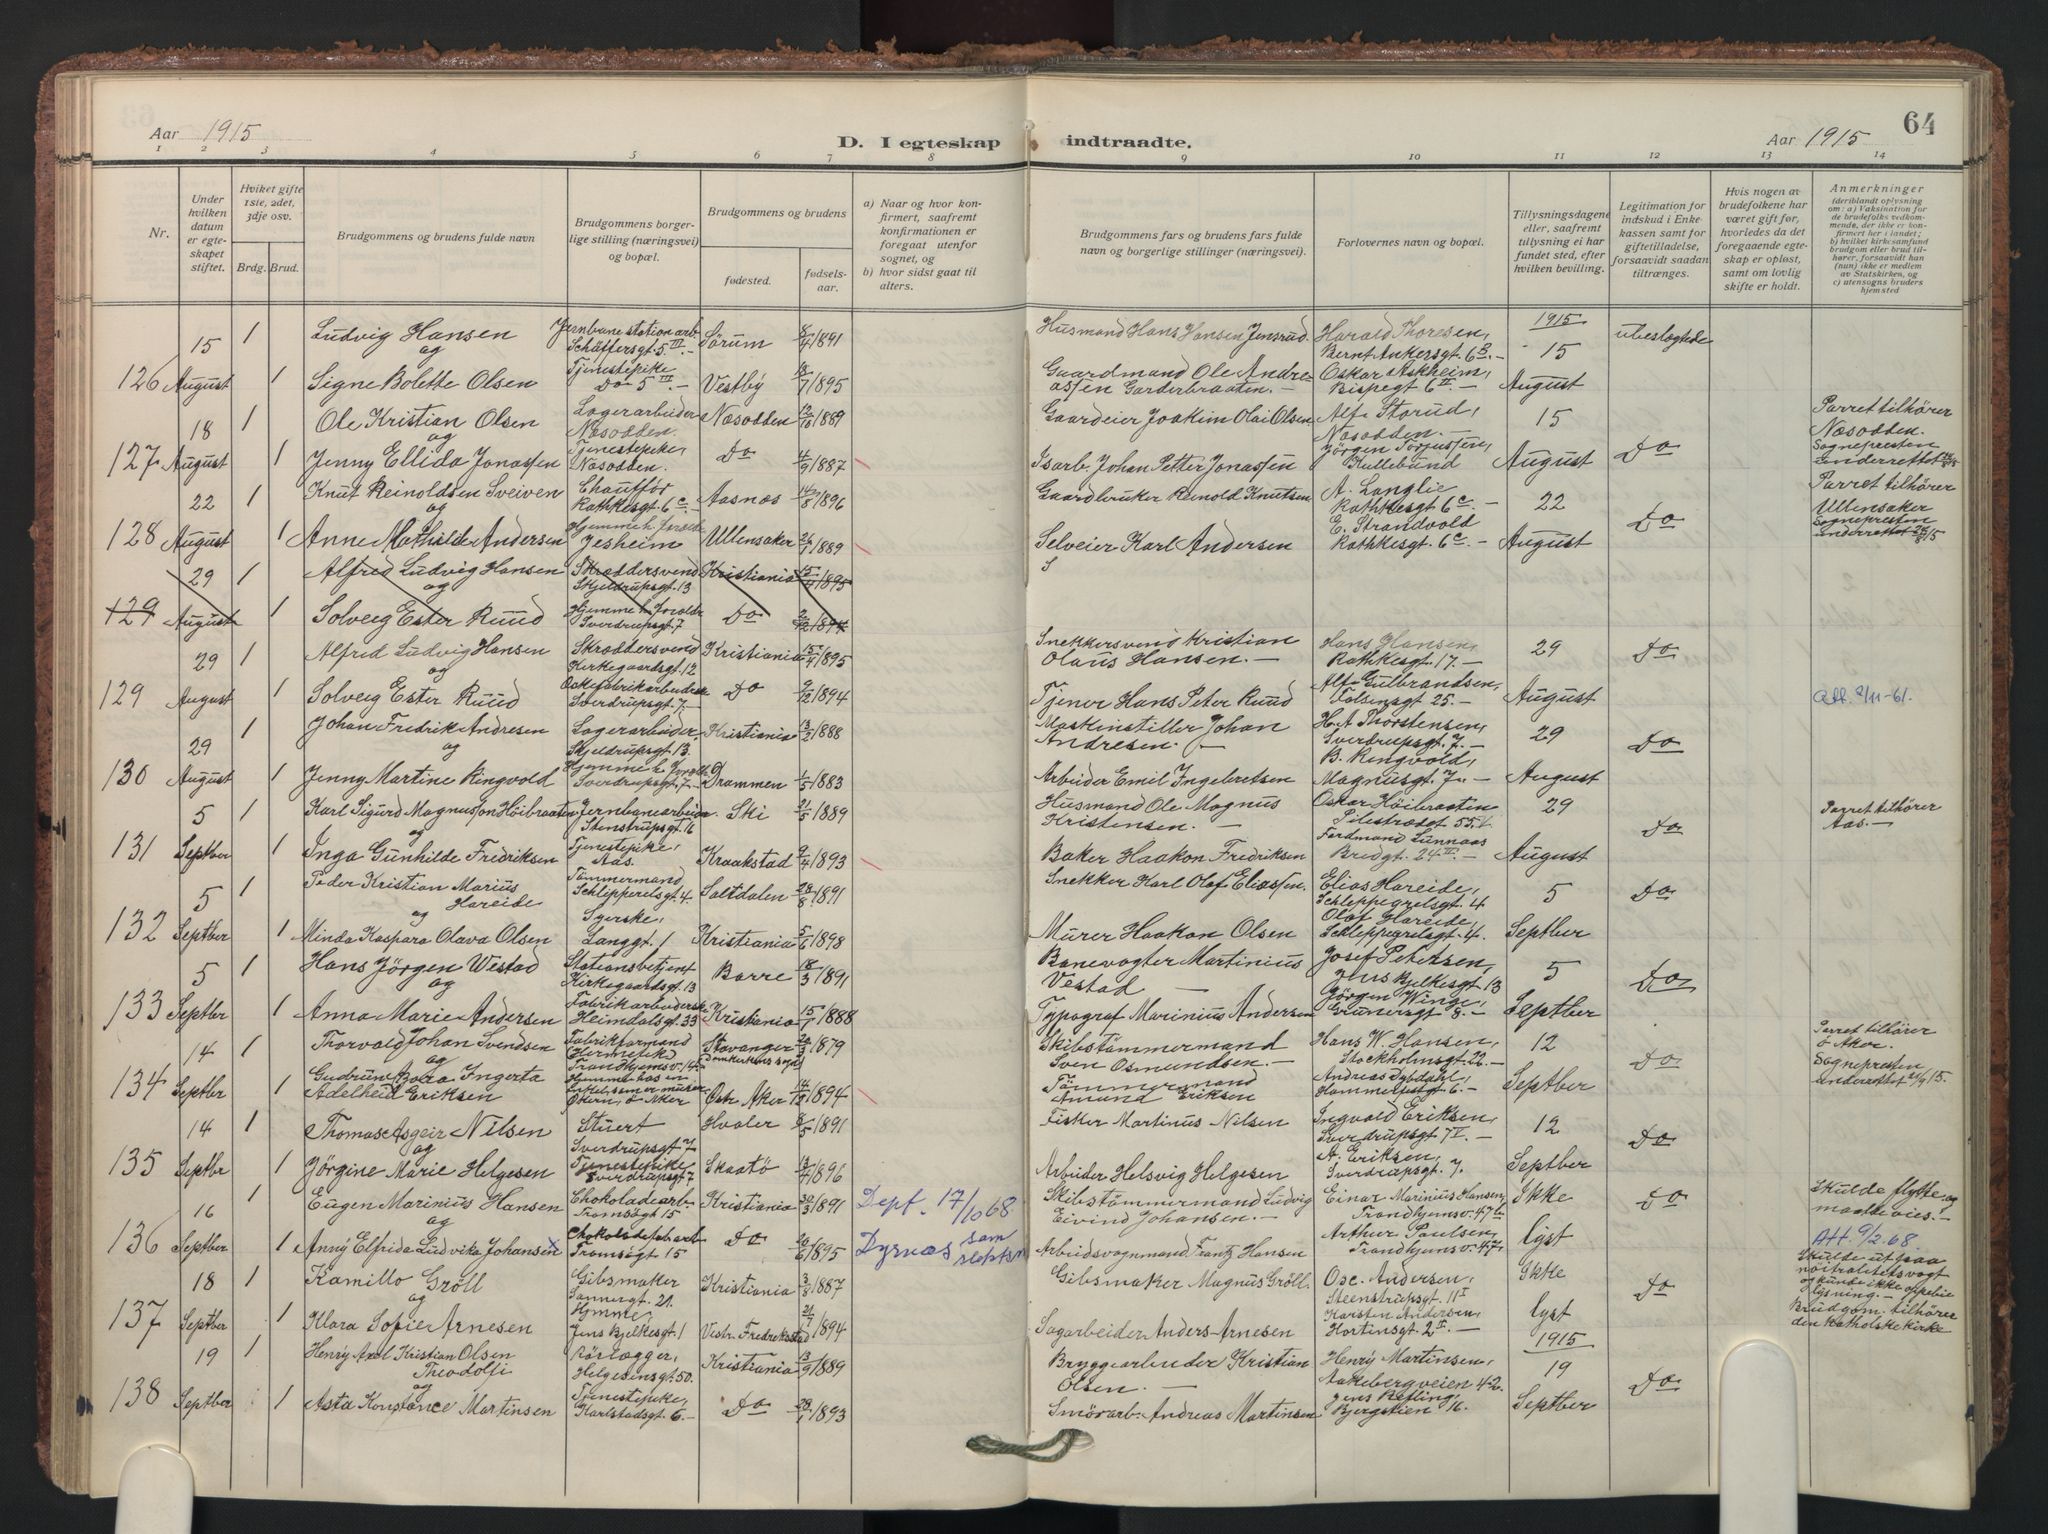 64
Aar 1915
D. I egteskap indtraadte.
Aar 1915
1 2 3 4 5 6 7 8 9 10 11 12 13 14
Nr.
Under hvilken datum er egteskapet stiftet.
Hviket gifte 1ste, 2det, 3dje osv.
Brdg. Brud.
Brudgommens og brudens fulde navn
Brudgommens borgerlige stilling (næringsvei) og bopæl.
Brudgommens og brudens
fødested.
fødselsaar.
a) Naar og hvor konfirmert, saafremt konfirmationen er foregaat utenfor sognet, og
b) hvor sidst gaat til alters.
Brudgommens fars og brudens fars fulde navn og borgerlige stillinger (næringsvei).
Forlovernes navn og bopæl.
Tillysningsdagene eller, saafremt tillysning ei har fundet sted, efter hvilken bevilling.
Legitimation for indskud i Enkekassen samt for giftetilladelse, forsaavidt saadan tiltrænges.
Hvis nogen av brudefolkene har været gift før, hvorledes da det foregaaende egteskap er opløst, samt om lovlig skifte er holdt.
Anmerkninger
(deriblandt oplysning om: a) Vaksination for de brudefolks vedkommende, der ikke er konfirmert her i landet; b) hvilket kirkesamfund brudgom eller brud tilhører, forsaavidt han (hun) ikke er medlem av Statskirken, og c) utensogns bruders hjemsted
15 1 Ludvig Hansen Jernbanestation arb. Schäffersgt. 5 III. Sørum 8/4 1891 Husmand Hans Hansen Jensrud. Harald Thoresen, Bernt Ankersgt. 6 B. 1915 15 ubeslægtede
og
126 August 1 Signe Bolette Olsen Tjenestepike Do 5 III. Vestby 18/7 1895 Gaardmand Ole Andreassen Garderbraaten. Oskar Askheim, Bispegt 6 II. August
18 1 Ole Kristian Olsen Lagerarbeider Næsodden. Næsodden 12/10 1889 Gaardeier Joakim Olai Olsen Alf Storud, Næsodden. 15 Parret tilhører Næsodden.
og
127 August 1 Jenny Ellida Jonassen Tjenestepike, Næsodden. Do 4/9 1887 Isarb. Johan Petter Jonassen Jörgen Torjussen, Kullebund August Do Sognepresten underrettet
22 1 Knut Reinoldsen Sveiven Chauffør Rathkesgt. 6 c. Aasnæs 14/8 1896 Gaardbruker Reinold Knutsen A. Langlie Rathkesgt. 6 c. 22 Parret tilhører Ullensaker
og
128 August 1 Anne Mathilde Andersen Hjemme h. foræld. Jesheim Ullensaker 26/1 1889 Selveier Karl Andersen E. Strandvold Rathkesgt. 6 c. August Do Sognepresten underrettet
29 1 Alfred Ludvig Hansen Skræddersvend Skjeldrupsgt. 13 Kristiania 15/4 1895 S
og
129 August 1 Solveig Ester Ruud Hjemme h. foræld. Sverdrupsgt. 7 Do 2/12 1894
29 1 Alfred Ludvig Hansen Skræddersvend Kirkegaardsgt. 12 Kristiania 15/4 1895 Snekkersvend Kristian Olaus Hansen. Hans Hansen, Rathkesgt. 17. 29 Do
og
129 August 1 Solveig Ester Ruud Eskefabrikarbeiderske Sverdrupsgt. 7 Do 9/12 1894 Tjener Hans Peter Ruud Alf Gulbrandsen, Falsensgt 25. August Att. 2/11-61.
29 1 Johan Fredrik Andresen Lagerarbeider, Skjeldrupsgt. 13. Kristiania 13/2 1888 Maskinstiller Johan Andresen. H. A Thorstensen, Sverdrupsgt. 7. 29 Do
og
130 August 1 Jenny Martine Ringvold Hjemme h. foræld. Sverdrupsgt. 7. Drammen 1/5 1883 Arbeider Emil Ingebretsen B. Ringvold, Magnusgt. 7. August
5 1 Karl Sigurd Magnusson Höibraaten Jernbanearbeider. Stenstrupsgt. 16 Ski 21/5 1889 Husmand Ole Magnus Kristensen. Oskar Höibraaten Pilestrædet 55. 29 Parret tilhører Aas.
og
131 Septber 1 Inga Gunhilde Fredriksen Tjenestepike, Aas. Kraakstad 9/4 1893 Baker Haakon Fredriksen Ferdinand Sunnaas Bredgt. 24 II. August Do
5 1 Peder Kristian Marius Hareide Tømmermand Schleppegrelsgt. 4. Saltdalen 28/8 1891 Snekker Karl Olaf Eliassen. Elias Hareide, Schleppegrelsgt. 4 5 Do
og
132 Septber 1 Minda Kaspara Olava Olsen Syerske, Langgt. 1 Kristiania 5/6 1898 Murer Haakon Olsen Olaf Hareide, Schleppegrelsgt. 4. Septber
5 1 Hans Jörgen Westad Stationsbetjent Kirkegaardsgt. 13 Borre 18/3 1891 Banevogter Martinius Vestad Josef Petersen, Jens Bjelkesgt 13 5 Do
og
133 Septber 1 Anna Marie Andersen Fabrikarbeiderske Heimdalsgt. 33 Kristiania 15/1 1888 Typograf Marinius Andersen Jörgen Winge, Grünersgt 8. Septber
14 1 Thorvald Johan Svendsen Fabrikformand Hermetik Trondhjemsv. 14. Stavanger Domkirkens sogn 1879 Skibstømmermand Sven Osmundsen. Hans W. Hansen, Stockholmsgt. 22. 12 Parret tilhører Ö. Aker.
og
134 Septbr 1 Gudrun Bora Ingerta Adelheid Eriksen Hjemme hos en Östr. Aker 14/12 1894 Tømmermand Amund Eriksen Andreas Dybdahl, Hammerfestgt. 6. Septber Do Sognepresten underrettet 21/9 15.
14 1 Thomas Asgeir Nilsen Stuert Sverdrupsgt 7 Hvaler 8/5 1891 Fisker Martinus Nilsen Ingvald Eriksen, Sverdrupsgt. 7 V. 12 Do
og
135 Septbr 1 Jörgine Marie Helgesen Tjenestepike Sverdrupsgt. 7 Skaatö 13/4 1896 Arbeider Helsvig Helgesen A. Eriksen, Sverdrupsgt. 7. Septber
16 1 Eugen Marinius Hansen Chokoladearb. Tromsögt 15 Kristiania 30/3 1891 Dept. 17/10 68 Skibstømmermand Ludvig Eivind Johansen. Einar Marinius Hansen, Trondhjemsv. 47 b. Ikke Do Skulde flytte og maatte vies.
og
136 Septber 1 Anny Elfrida Ludvika Johansen x Chokoladefabarb Tromsögt 15 Do 20/6 1895 Dyrnæs som slektsn Arbeidsvognmand Frantz Hansen Arthur Paulsen, Trondhjemsv. 47. lyst Att. 9/2 68.
18 1 Kamillo Gröll Gibsmaker Sannergt. 21. Kristiania 3/8 1887 Gibsmaker Magnus Gröll. Osc. Andersen, Steenstrupsgt. 11 I Ikke Do Skulde ut paa nöitralitetsvagt og kunde ikke oppebie lysning.
og
137 Septber 1 Klara Sofie Arnesen Hjemme Jens Bjelkesgt. 1 Vestr. Fredrikstad 21/7 1894 Sagarbeider Anders Arnesen Karsten Andersen, Hortinsgt. 2 II. lyst Brudgom. tilhører den katholske kirke
19 1 Henry Axel Kristian Olsen Theodolfi Rörlægger, Helgesensgt. 50. Kristiania 13/9 1889 Bryggearbeider Kristian Olsen. Henry Martinsen, Aakebergveien 42. 1915 19 Do
og
138 Septber 1 Asta Konstance Martinsen Tjenestepike, Karlstadsgt. 6. Do 28/1 1893 Smörarb. Andreas Martinsen Jens Refling, Bjergstien 16. Septber